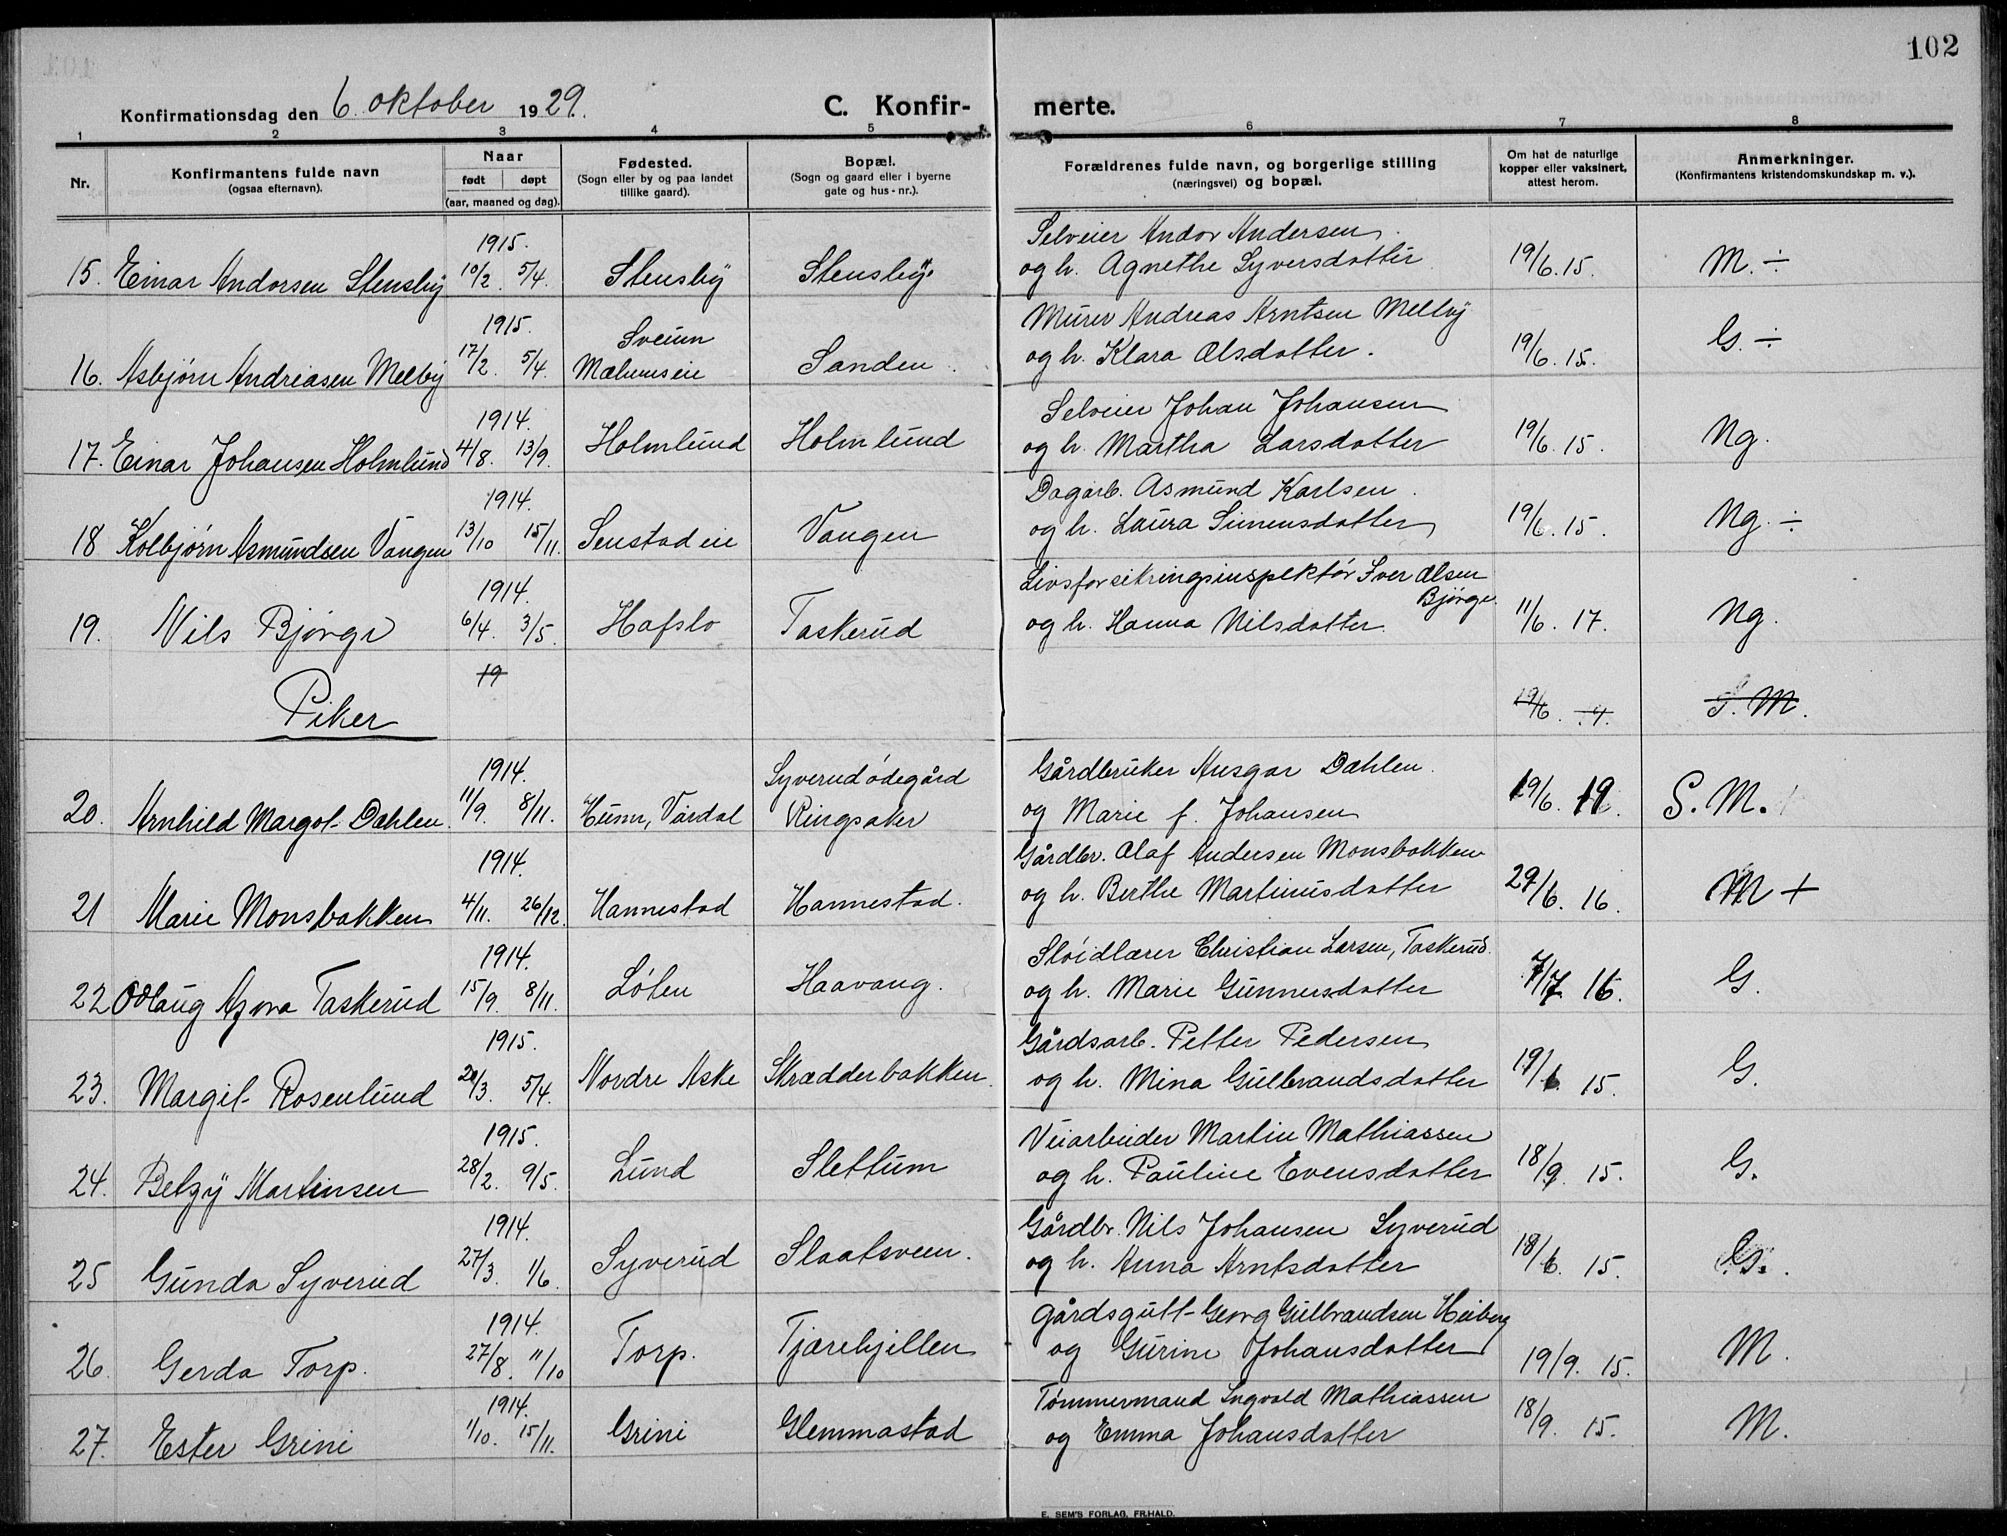 102
Konfirmationsdag den 6. oktober 1929.
C. Konfirmerte.
1 2 3 4 5 6 7 8
Nr.
Konfirmantens fulde navn
(ogsaa efternavn).
Naar
født døpt
(aar, maaned og dag).
Fødested.
(Sogn eller by og paa landet
tillike gaard).
Bopæl.
(Sogn og gaard eller i byerne
gate og hus-nr.).
Forældrenes fulde navn, og borgerlige stilling
(næringsvei) og bopæl.
Om hat de naturlige
kopper eller vaksinert,
attest herom.
Anmerkninger.
(Konfirmantens kristendomskundskap m. v.).
1915. Selveier Andor Andersen
15. Einar Andorsen Stensby 10/2 5/4. Stensby Stensby. og h. Agnethe Syversdatter 19/6.15. M. ÷
1915. Sveum Murer Andreas Arntsen Melby
16. Asbjørn Andreasen Melby 17/2. 5/4. Mælumseie Sanden. og h. Klara Olsdatter. 19/6.15. G. ÷
1914. Selveier Johan Johansen
17. Einar Johansen Holmlund 4/8. 13/9. Holmlund Holmlund og h. Martha Larsdatter 19/6.15. Ng.
1914. Dagarb. Asmund Karlsen
18 Kolbjørn Asmundsen Vangen 13/10 15/11. Senstadeie Vangen og h. Laura Simensdatter 19/6.15. Ng. ÷
1914. Livsforsikringsinspektør Iver Olsen Bjørge.
19. Nils Bjørge 6/4. 3/5. Hafslo Taskerud og h. Hanna Nilsdatter. 11/6. 17. Ng.
19
Piker 19/6. S. M.
1914. Syverudødegård Gårdbruker Ansgar Dahlen.
20. Arnhild Margot Dahlen. 11/9. 8/11. Hunn, Vardal Ringsaker og Marie f. Johansen 19/6. 19. S. M.
1914. Gårdbr. Olaf Andersen Monsbakken
21 Marie Monsbakken 4/11. 26/12. Hannestad Hannestad. og h. Berthe Martinusdatter 29/6. 16. M +
1914. Sløidlærer Christian Larsen, Taskerud.
22 Odlaug Azora Taskerud 15/9. 8/11. Løten Haavang. og h. Marie Gunnersdatter 7/7 16. G.
1915. Gårdsarb. Petter Pedersen
23. Margit Rosenlund 20/3. 5/4. Nordre Aske Skrædderbakken. og h. Mina Gulbrandsdatter 19/6. 15. G.
1915. Veiarbeider Martin Mathiassen
24. Betzy Martinsen 28/2. 9/5. Lund Slettum og h. Pauline Evensdatter 18/9. 15. G.
1914. Gårdbr. Nils Johansen Syverud
25 Gunda Syverud 27/3. 1/6. Syverud Slaatsveen. og h. Anna Arntsdatter 18/6. 15. G.
1914. Gårdsgutt Georg Gulbrandsen Heiberg
26. Gerda Torp. 27/8. 11/10 Torp. Tjærehjellen og Gurine Johansdatter 19/9. 15. M.
1914. Tømmermand Ingvald Mathiassen
27. Ester Grini 1/10. 15/11. Grini Glemmastad og Emma Johansdatter 18/9. 15. M.
E. SEM'S FORLAG, FR.HALD.